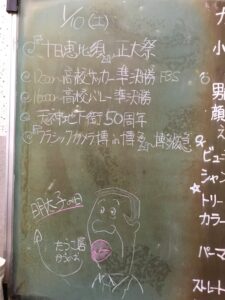 1/10(土)
十日恵比須 正大祭
12:00〜高校サッカー準決勝 FBS
16:00〜高校バレー準決勝
天神地下街50周年
クラシックカメラ博 in 博多 博多阪急
明太子の日
たらこ唇
小
男
顔
ビュ
シャン
トリー
カラー
パーマ
ストレート